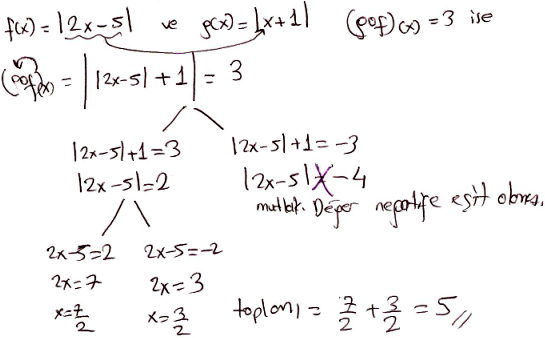 f(x) = |2x-5| ve g(x) = |x+1| (gof)(x) = 3 ise
(gof)(x) = ||2x-5| + 1| = 3
|2x-5|+1=3 |2x-5|+1=-3
|2x-5|=2 |2x-5|≠-4
mutlak. Değer negatife eşit olmas.
2x-5=2 2x-5=-2
2x=7 2x=3
x=7/2 x=3/2 toplamı = 7/2 + 3/2 = 5//